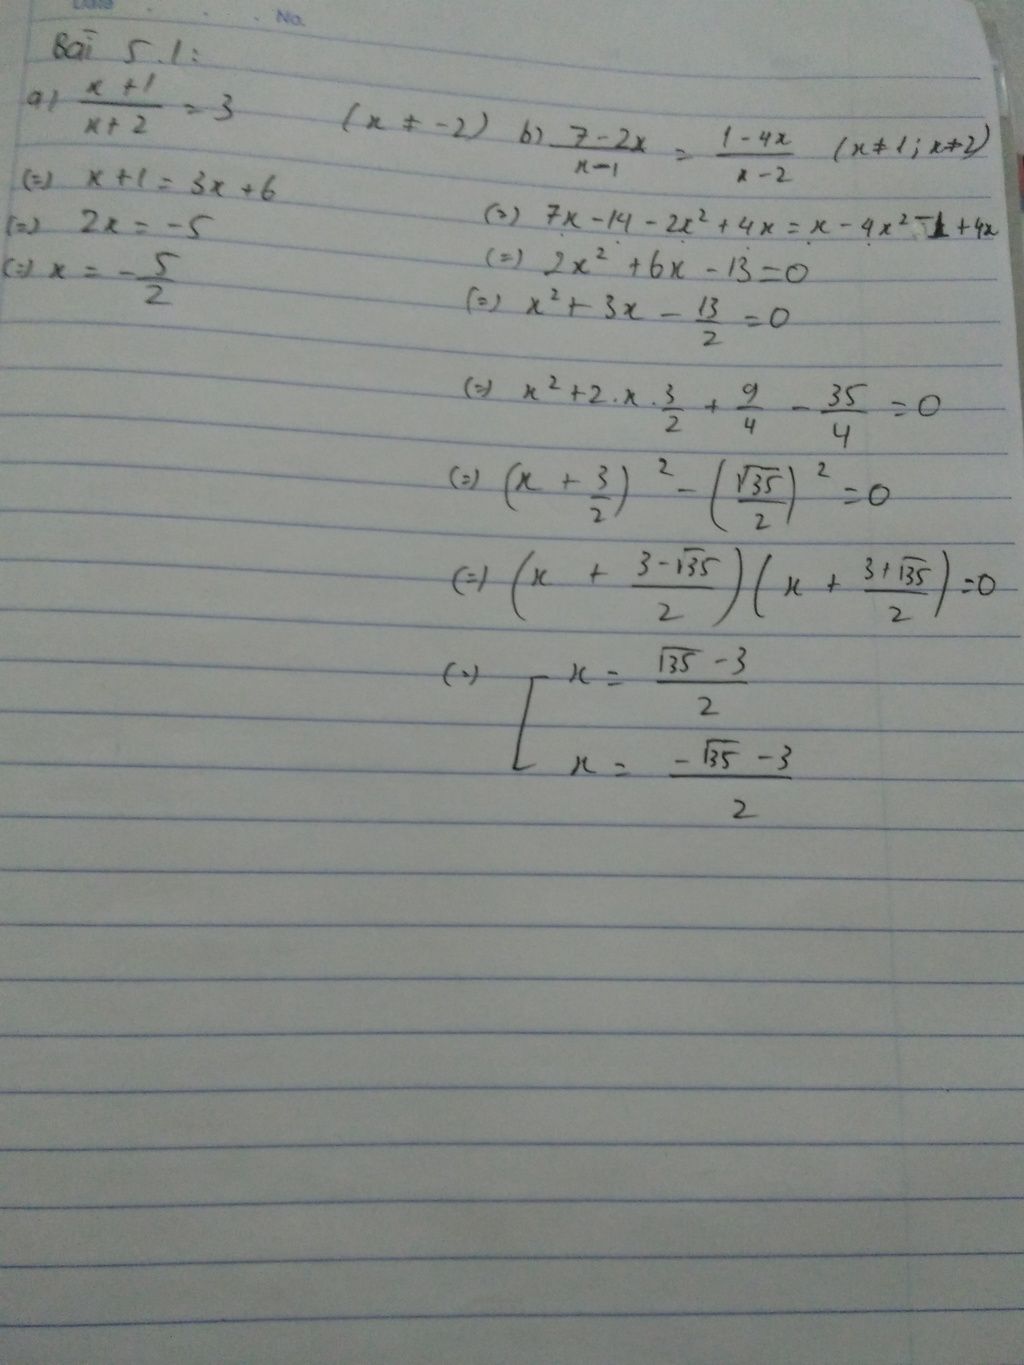 Date No.
Bài 5.1:
a) \frac{x+1}{x+2} = 3 (x ≠ -2)
(=) x+1 = 3x+6
(=) 2x = -5
(=) x = -\frac{5}{2}
b) \frac{7-2x}{x-1} = \frac{1-4x}{x-2} (x≠1; x≠2)
(=) 7x - 14 - 2x² + 4x = x - 4x² - 1 + 4x
(=) 2x² + 6x - 13 = 0
(=) x² + 3x - \frac{13}{2} = 0
(=) x² + 2.x.\frac{3}{2} + \frac{9}{4} - \frac{35}{4} = 0
(=) (x + \frac{3}{2})² - (\frac{√35}{2})² = 0
(=) (x + \frac{3-√35}{2})(x + \frac{3+√35}{2}) = 0
(=) [ x = \frac{√35 - 3}{2}
x = \frac{-√35 - 3}{2}